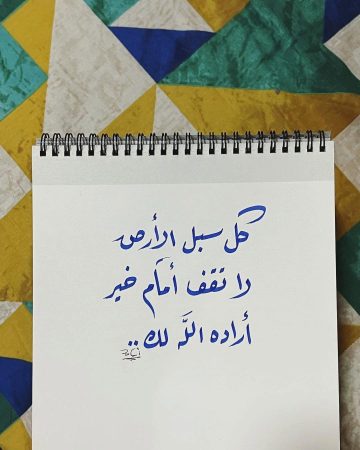 كل سبل الأرض
لا تقف أمام خير
أراده الله لك..